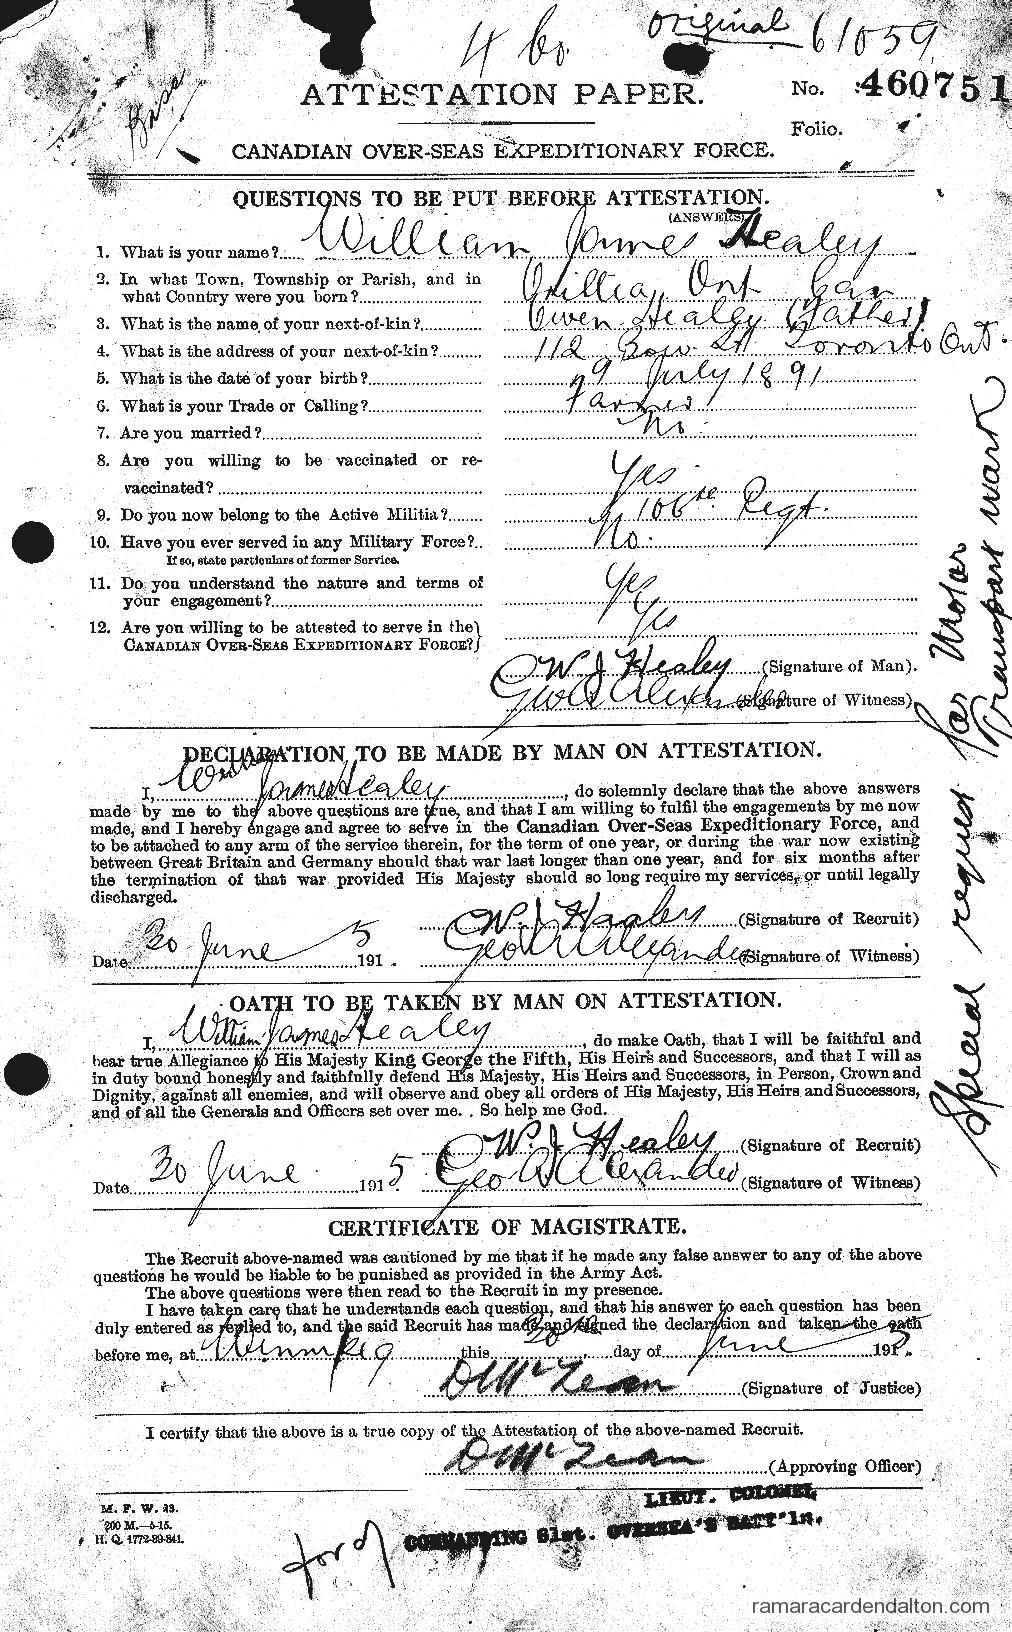 original 61059
4 Co.
Base
ATTESTATION PAPER.
No. 460751
Folio.
CANADIAN OVER-SEAS EXPEDITIONARY FORCE.
QUESTIONS TO BE PUT BEFORE ATTESTATION.
(ANSWERS)
1. What is your name? William James Healey
2. In what Town, Township or Parish, and in
what Country were you born? Orillia, Ont Can
3. What is the name of your next-of-kin? Owen Healey (Father)
4. What is the address of your next-of-kin? 112 St Toronto Ont.
5. What is the date of your birth? July 1891
6. What is your Trade or Calling? Farmer
7. Are you married? No.
8. Are you willing to be vaccinated or re-
vaccinated? Yes
9. Do you now belong to the Active Militia? 106th Regt.
10. Have you ever served in any Military Force? No.
If so, state particulars of former Service.
11. Do you understand the nature and terms of
your engagement? Yes
12. Are you willing to be attested to serve in the
CANADIAN OVER-SEAS EXPEDITIONARY FORCE? Yes
W. J Healey (Signature of Man).
Geo A Alexander (Signature of Witness)
Special request for Motor
Transport work
DECLARATION TO BE MADE BY MAN ON ATTESTATION.
I, William James Healey, do solemnly declare that the above answers
made by me to the above questions are true, and that I am willing to fulfil the engagements by me now
made, and I hereby engage and agree to serve in the Canadian Over-Seas Expeditionary Force, and
to be attached to any arm of the service therein, for the term of one year, or during the war now existing
between Great Britain and Germany should that war last longer than one year, and for six months after
the termination of that war provided His Majesty should so long require my services, or until legally
discharged.
W. J Healey (Signature of Recruit)
Date 30 June 1915. Geo A Alexander (Signature of Witness)
OATH TO BE TAKEN BY MAN ON ATTESTATION.
I, William James Healey, do make Oath, that I will be faithful and
bear true Allegiance to His Majesty King George the Fifth, His Heirs and Successors, and that I will as
in duty bound honestly and faithfully defend His Majesty, His Heirs and Successors, in Person, Crown and
Dignity, against all enemies, and will observe and obey all orders of His Majesty, His Heirs and Successors,
and of all the Generals and Officers set over me. So help me God.
W. J Healey (Signature of Recruit)
Date 30 June 1915. Geo A Alexander (Signature of Witness)
CERTIFICATE OF MAGISTRATE.
The Recruit above-named was cautioned by me that if he made any false answer to any of the above
questions he would be liable to be punished as provided in the Army Act.
The above questions were then read to the Recruit in my presence.
I have taken care that he understands each question, and that his answer to each question has been
duly entered as replied to, and the said Recruit has made and signed the declaration and taken the oath
before me, at Winnipeg this 30th day of June 1915.
D McLean (Signature of Justice)
I certify that the above is a true copy of the Attestation of the above-named Recruit.
D McLean (Approving Officer)
LIEUT. COLONEL
COMMANDING 61st. OVERSEA'S BATT'LN.
M. F. W. 23.
200 M.—5-15.
H. Q. 1772-39-841.
for
ramaracardendalton.com